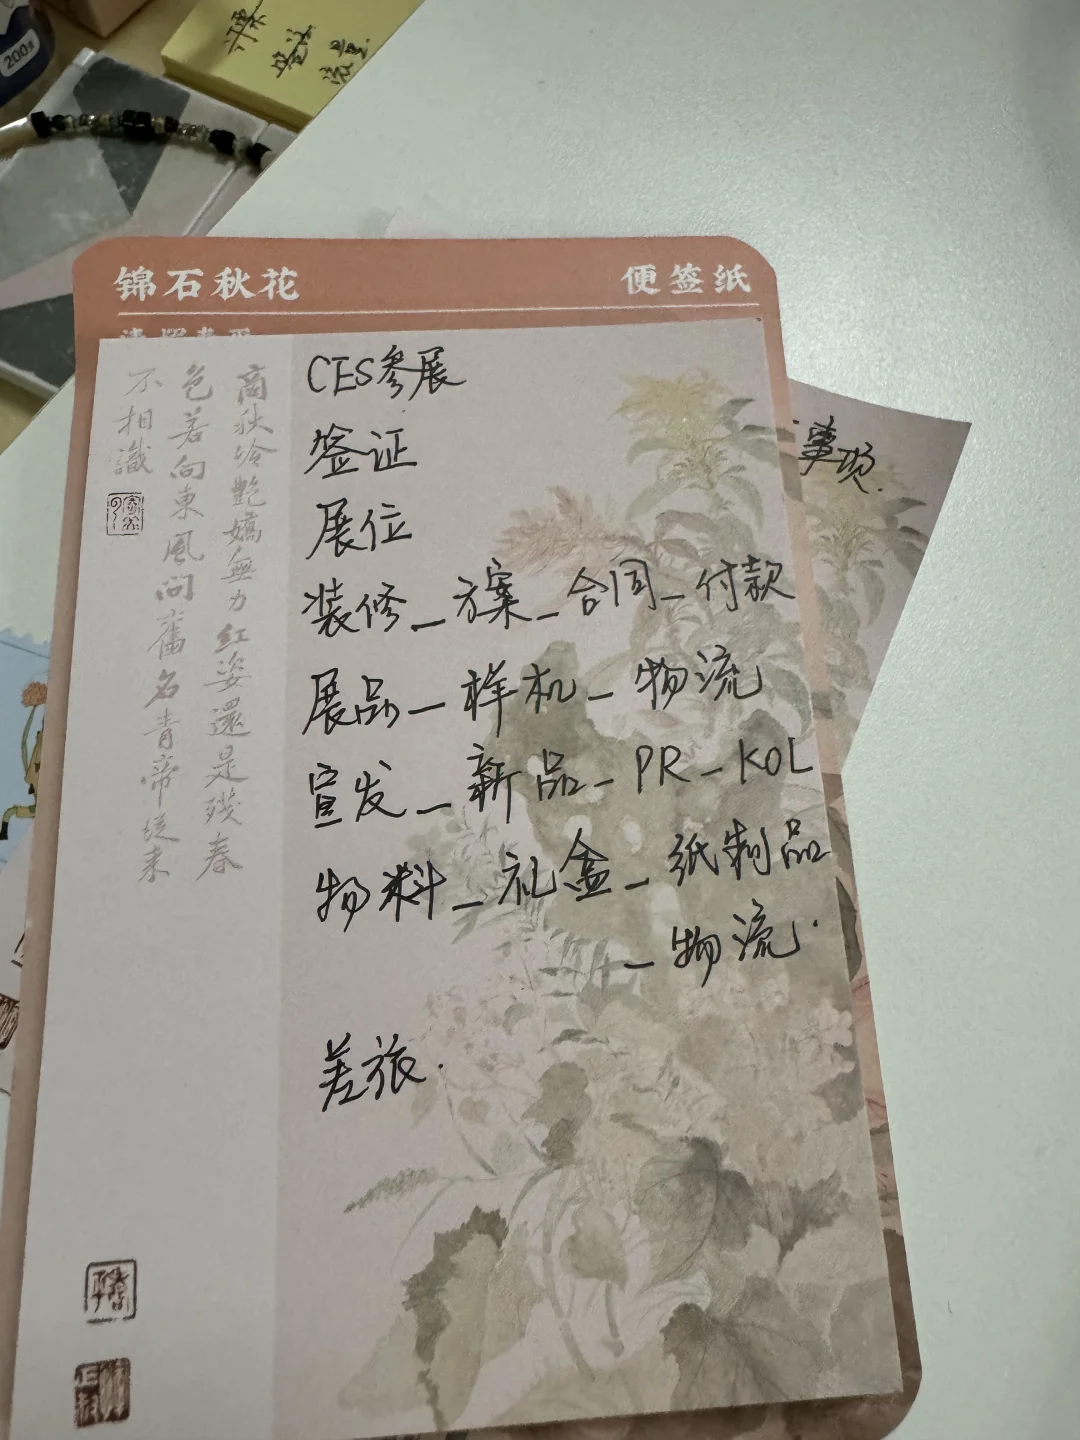 200g
锦石秋花
便签纸
CES参展
签证
展位
装修_方案_合同_付款
展品_样机_物流
宣发_新品_PR_KOL
物料_礼盒_纸制品
_物流.
差旅.
事项.
商秋冷艷嬌無力紅姿還是殘春
色若向東風問舊名青帝從來
不相識